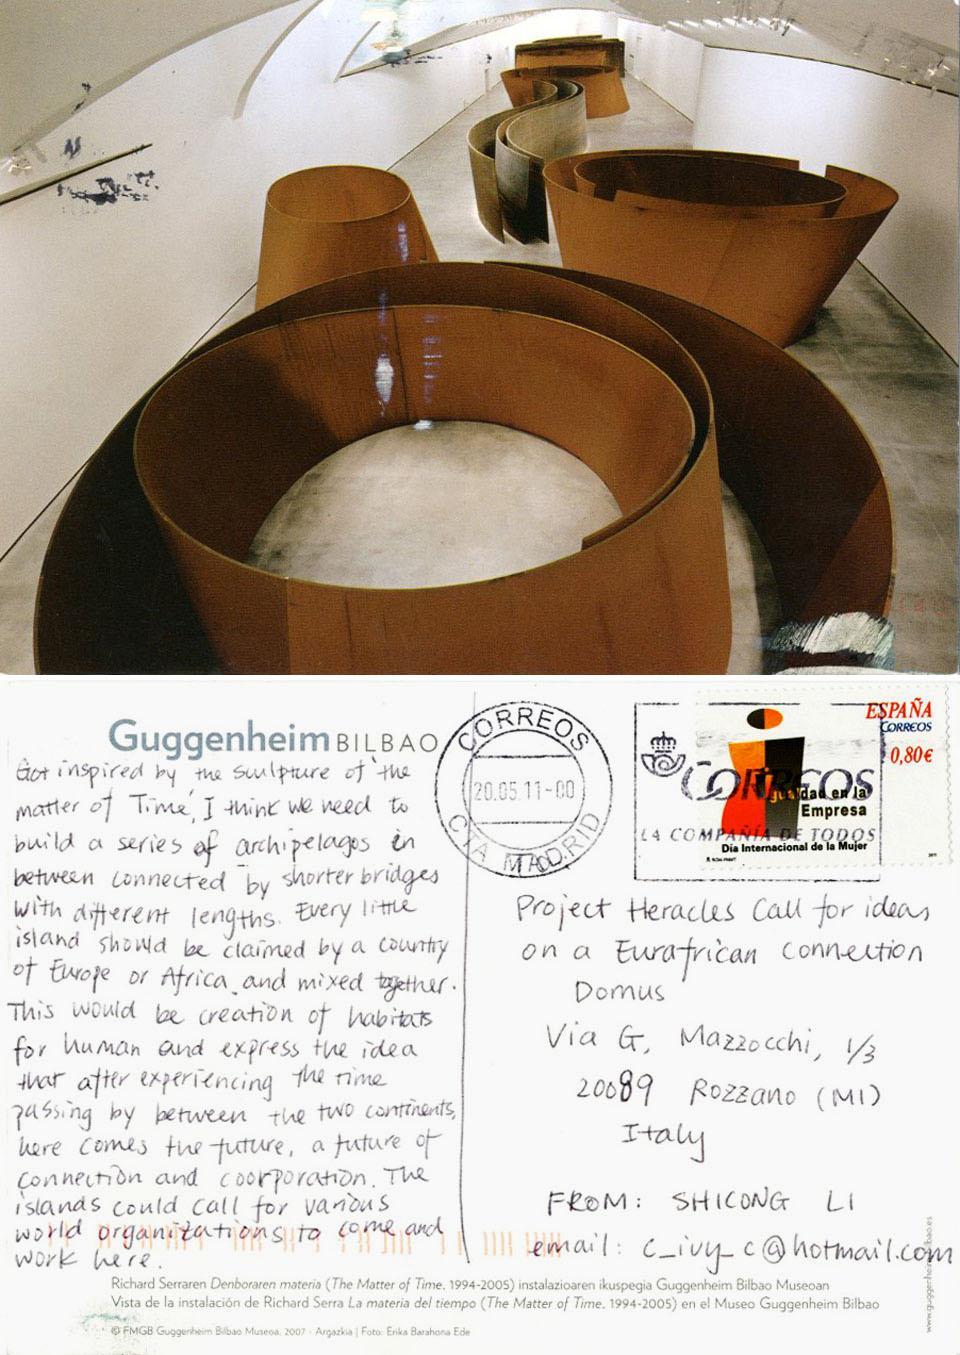 Guggenheim BILBAO
Got inspired by the sculpture of 'the
matter of Time', I think we need to
build a series of archipelagos in
between connected by shorter bridges
with different lengths. Every little
island should be claimed by a country
of Europe or Africa and mixed together.
This would be creation of habitats
for human and express the idea
that after experiencing the time
passing by between the two continents,
here comes the future, a future of
connection and coorporation. The
islands could call for various
world organizations to come and
work here.
CORREOS
20.05.11-00
CTA MADRID
CORREOS
LA COMPAÑÍA DE TODOS
ESPAÑA
CORREOS
0,80€
Igualdad en la
Empresa
Día Internacional de la Mujer
2011
Project Heracles Call for ideas
on a Eurafrican connection
Domus
Via G. Mazzocchi, 1/3
20089 Rozzano (MI)
Italy
FROM: SHICONG LI
email: c_ivy_c@hotmail.com
Richard Serraren Denboraren materia (The Matter of Time, 1994-2005) instalazioaren ikuspegia Guggenheim Bilbao Museoan
Vista de la instalación de Richard Serra La materia del tiempo (The Matter of Time, 1994-2005) en el Museo Guggenheim Bilbao
© FMGB Guggenheim Bilbao Museoa, 2007 · Argazkia | Foto: Erika Barahona Ede
www.guggenheim-bilbao.es